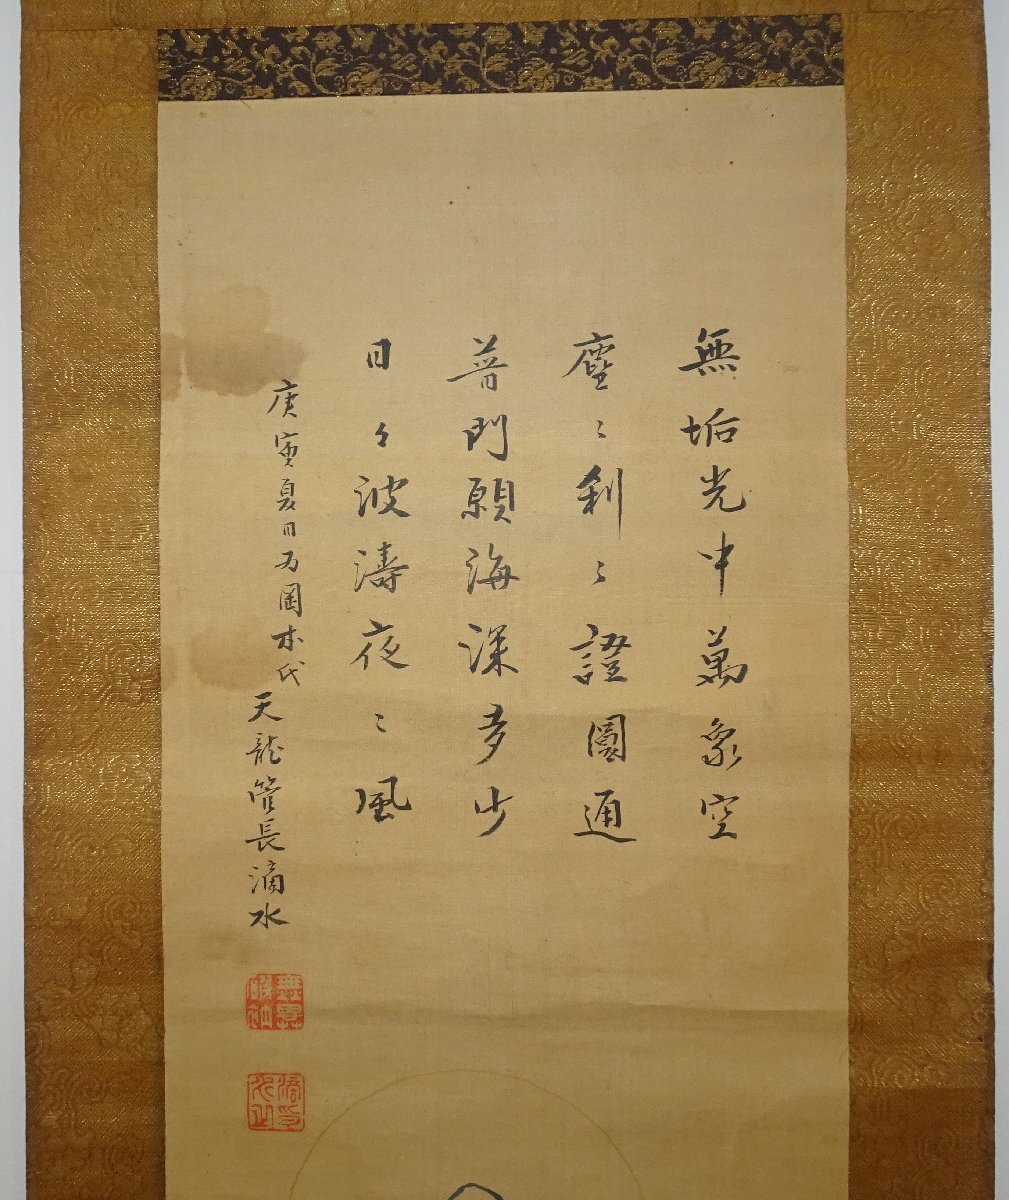 無垢光中萬象空
塵〻刹〻證圓通
普門願海深多少
日々波濤夜〻風
庚寅夏日為岡本氏
天龍管長滴水